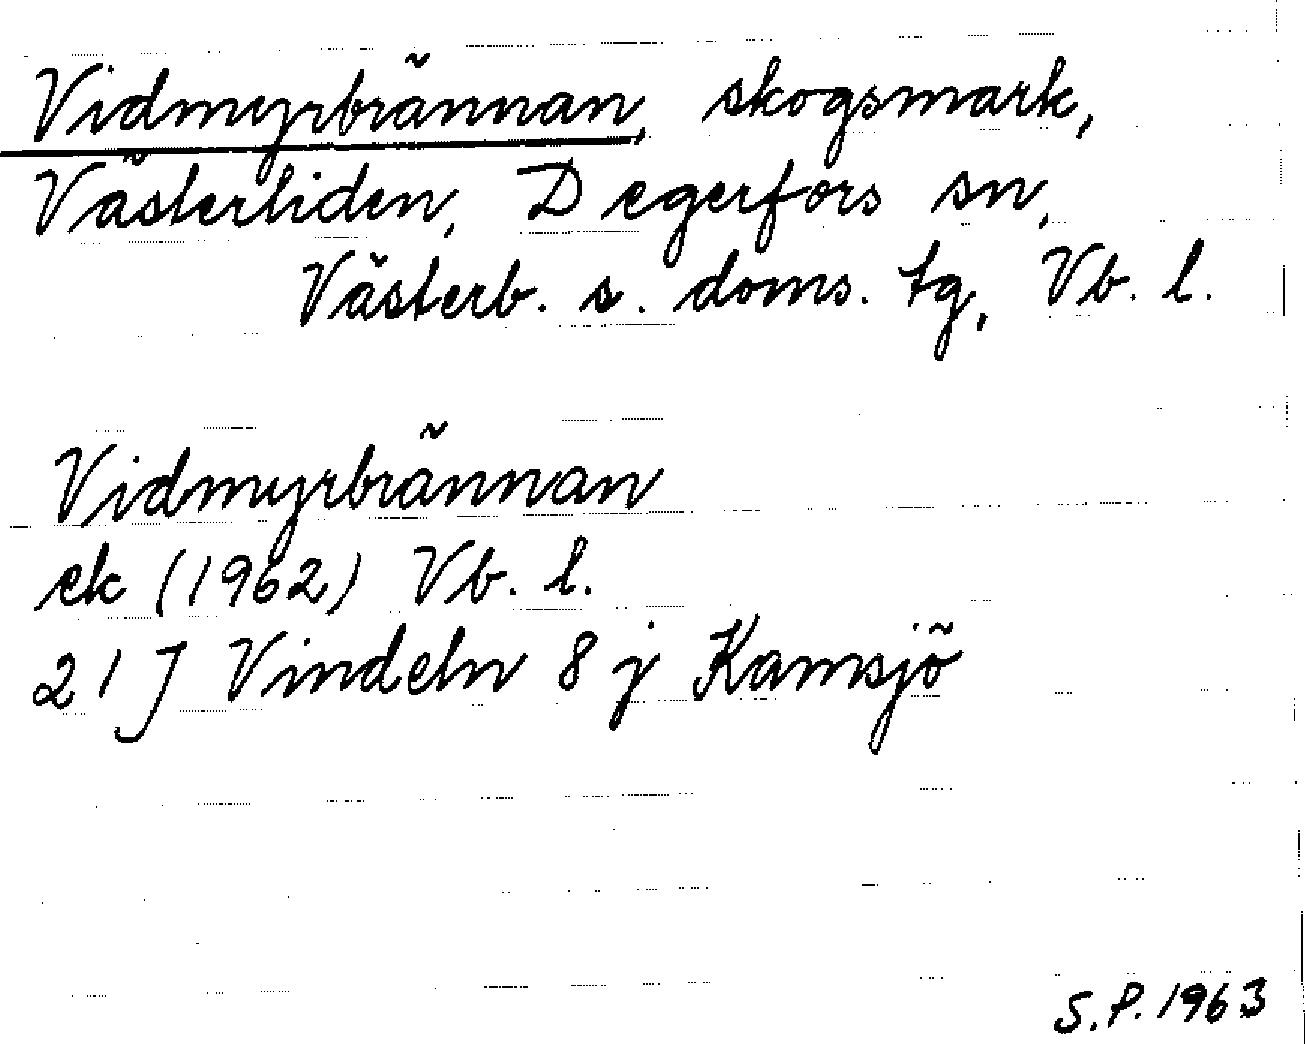 Vidmyrbrännan, skogsmark,
Västerliden, Degerfors sn,
Västerb. s. doms. tg, Vb. l.
Vidmyrbrännan
ek (1962) Vb. l.
21 J Vindeln 8 j Kamsjö
S.P. 1963